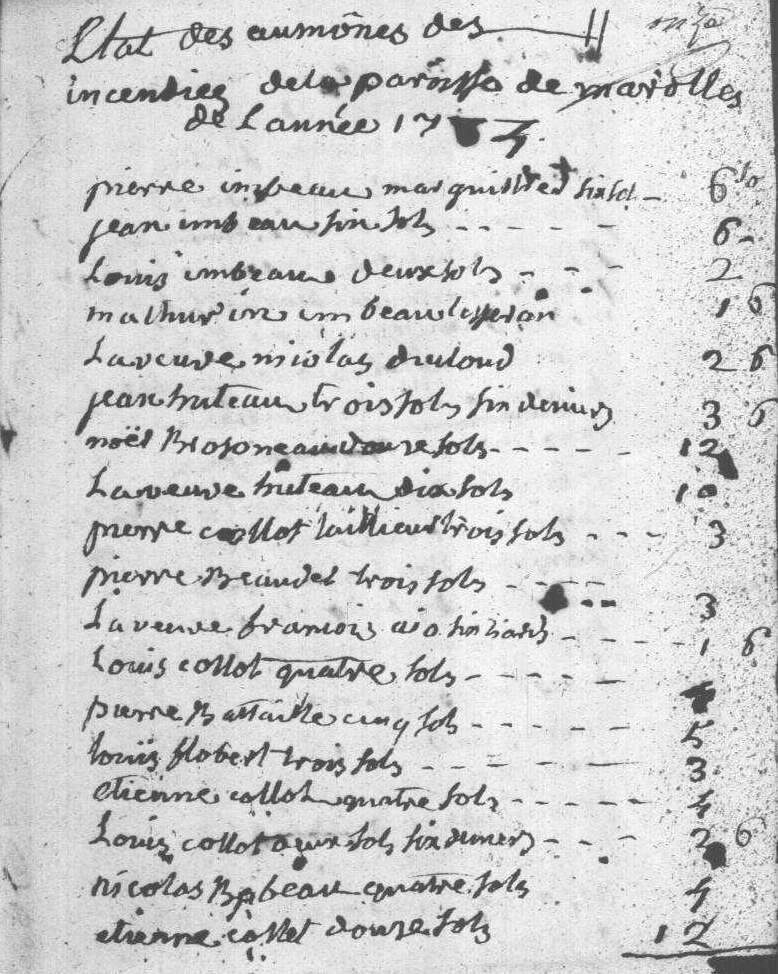 Etat des aumônes des
incendiez de la paroisse de marolles
de L année 17 4
pierre imbeau marguillier six sol - 6 so
jean imbeau six sols - - - - - 6 -
Louis imbeau deux sols - - - 2
mathurin imbeau 1 6
La veuve nicolas 2 6
jean huteau trois sols six deniers 3 6
noël douze sols - - - - - 12
La veuve huteau dix sols 10
pierre collot tailleur trois sols - - - 3
pierre Beaudet trois sols - - - - 3
La veuve francois six liards - - - - - 1 6
Louis collot quatre sols - - - - - 4
pierre Battaille cinq sols - - - - - 5
louis flobert trois sols - - - - - 3
etienne collot quatre sols - - - - - 4
Louis collot deux sols six deniers - - - 2 6
nicolas quatre sols 4
etienne collet douze sols 12